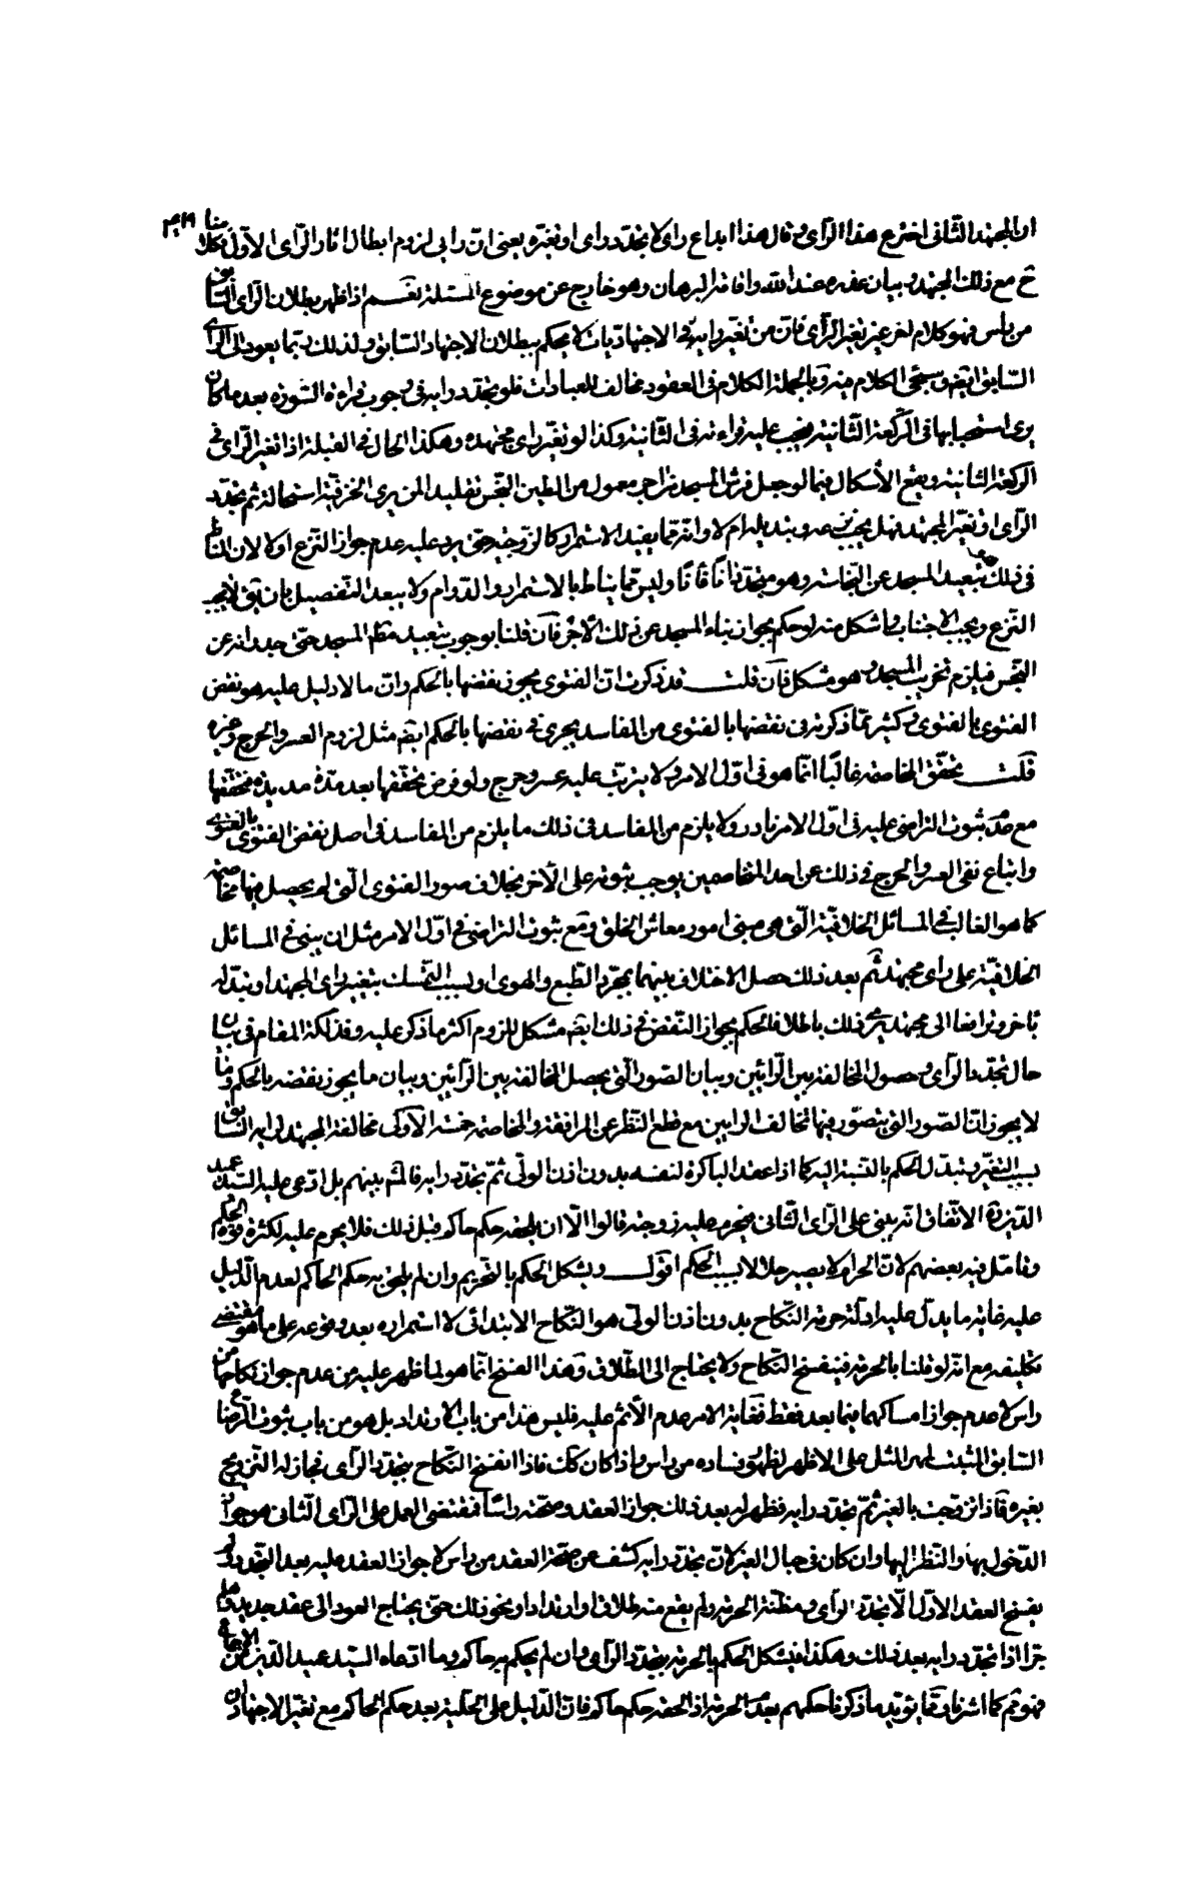 ان المجتهد الثانى اخترع هذا الرّأى وقال هذا ابداع راى لا تجدّد راى او تغيّره يعنى انّ رايى لزوم ابطال اثار الرّاى الاوّل فكلامنا
ح مع ذلك المجتهد و بيان عذره عند الله واقامة البرهان وهو خارج عن موضوع المسئلة نعم اذا ظهر بطلان الرّاى السّابق
من راس فهو كلام اخر غير تغيّر الرّأى فانّ من تغيّر رايه فى الاجتهاديات لا يحكم ببطلان الاجتهاد السّابق ولذلك ربّما يعود الى الرّاى
السّابق ايضا وسيجئ الكلام فيه وبالجملة الكلام فى العقود مخالف للعبادات فلو تجدّد رايه فى وجوب قراءة السّورة بعد ما كان
يرى استحبابها فى الرّكعة الثّانية يجب عليه قراءته فى الثّانية وكذا لو تغيّر راى مجتهده وهكذا الحال فى القبلة اذا تغيّر الرّاى فى
الرّكعة الثّانية ويقع الأشكال فيما لو جعل فرش المسجد من اجر معمول من الطين النّجس تقليدا لمن يرى الخزفيّة استحالة ثم تجدّد
الرّاى او تغيّر المجتهد فهل يجب نزعه و تبديله ام لا وانّه ممّا يفيد الاستمرار كالزوجيّة حتى يرد عليه عدم جواز النّزع او لا لان المناط
فى ذلك تبعيد المسجد عن النجاسة وهو متجدّد انًا فانًا وليس ممّا يناط بالاستمرار والدّوام ولا يبعد التّفصيل بان يق لا يجب
النّزع ويجب الاجتناب واشكل منه لو حكم بجواز بناء المسجد عن ذلك الأجر فان قلنا بوجوب تبعيد مطلق المسجد حتّى جدرانه عن
النّجس فيلزم تخريب المسجد وهو مشكل فان قلت قد ذكرت انّ الفتوى يجوز نقضها بالحكم وانّ ما لا دليل عليه هو نقض
الفتوى بالفتوى وكثير ممّا ذكرته فى نقضها بالفتوى من المفاسد يجرى فى نقضها بالحكم ايضا مثل لزوم العسر والحرج وغيره
قلت تحقّق المخاصمة غالبًا انّما هو فى اوّل الامر ولا يترتب عليه عسر وحرج ولو فرض تحقّقها بعد مدّة مديدة فتحقّقها
مع عدم ثبوت التراضى عليه فى اوّل الامر نادر ولا يلزم من المفاسد فى ذلك ما يلزم من المفاسد فى اصل نقض الفتوى بالفتوى
واتباع نفى العسر والحرج فى ذلك عن احد المتخاصمين يوجب ثبوته على الأخر بخلاف صور الفتوى الّتى لم يحصل فيها مخاصمة
كما هو الغالب فى المسائل الخلافيّة الّتى هى مبنى امور معاش الخلق ومع ثبوت التراضى فى اوّل الامر مثل ان يبنى فى المسائل
الخلافيّة على راى مجتهد ثم بعد ذلك حصل الاختلاف بينهما بمجرّد الطّبع والهوى او بسبب التمسّك بتغيّر راى المجتهد او تبدّله
باخر وترافعا الى مجتهد يرى ذلك باطلا فالحكم بجواز النّقض فى ذلك ايضا مشكل للزوم اكثر ما ذكر عليه وفذلكة المقام فى بيان
حال تجدّد الرّأى وحصول المخالفة بين الرّائيين وبيان الصّور الّتى يحصل المخالفة بين الرّأيين وبيان ما يجوز نقضه بالحكم وما
لا يجوز انّ الصّور التى يتصوّر فيها تخالف الرايين مع قطع النّظر عن المرافعة والمخاصمة خمسة الاولى مخالفة المجتهد لرايه السّابق
بسبب التّغيّر وتبدّل الحكم بالنّسبة اليه كما اذا عقد الباكرة لنفسه بدون اذن الولىّ ثمّ تجدّد رايه فالمشهور بينهم بل ادّعى عليه السّيّد عميد
الدّين ره الاتّفاق انّه يبنى على الرّاى الثّانى فيحرم عليه زوجته قالوا الّا ان يلحقه حكم حاكم قبل ذلك فلا يحرم عليه لكثرة قوّة الحكم
وتامّل فيه بعضهم لانّ الحرام لا يصير حلالا بسبب الحكم اقول ويشكل الحكم بالتّحريم وان لم يلحق به حكم الحاكم لعدم الدّليل
عليه غاية ما يدلّ عليه ادلّة حرمة النّكاح بدون اذن الولىّ هو النّكاح الابتدائى لا استمراره بعد وقوعه على ما هو مقتضى
تكليفه مع انّه لو قلنا بالحرمة فينفسخ النّكاح ولا يحتاج الى الطّلاق وهذا الفسخ انّما هو لما ظهر عليه من عدم جواز نكاحها من
راس لا عدم جواز امساكها فيما بعد فقط فغاية الامر عدم الأثم عليه فليس هذا من باب الارتداد بل هو من باب ثبوت الرّضاع
السّابق المثبت لمهر المثل على الاظهر لظهور فساده من راس واذا كان كك فاذا انفسخ النّكاح بتجدّد الرّأى فجاز له التّزويج
بغيره فاذا تزوّجت بالغير ثمّ تجدّد رايه فظهر له بعد ذلك جواز العقد وصحّته راسًا فمقتضى العمل على الرّاى الثّانى هو جواز
الدّخول بها والنّظر اليها وان كان فى حبال الغير لانّ تجدّد رايه كشف عن صحّة العقد من راس لا جواز العقد عليه بعد التّجدّد ولم
يفسخ العقد الاوّل الّا تجدّد الرأى ومظنّة الحرمة ولم يقع منه طلاق او ارتداد او نحو ذلك حتّى يحتاج العود الى عقد جديد وهلمّ
جرّا اذا تجدّد رايه بعد ذلك وهكذا فيشكل الحكم بالحرمة بتجدّد الرّأى وان لم يحكم به حاكم وما ادعاه السّيّد عميد الدّين من الاجماع
فهو ثم كما اشرنا وممّا يؤيّد ما ذكرنا حكمهم بعدم الحرمة اذا لحقه حكم حاكم فان الدّليل على الحلّية بعد حكم الحاكم مع تغيّر الاجتهاد ان